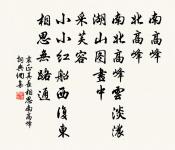 南高峰
北高峰
南北高峰雲淡濃
湖山圖畫中
采芙蓉
小小紅船西復東
相思無路通
袁正真長相思南高峰
詞典備集